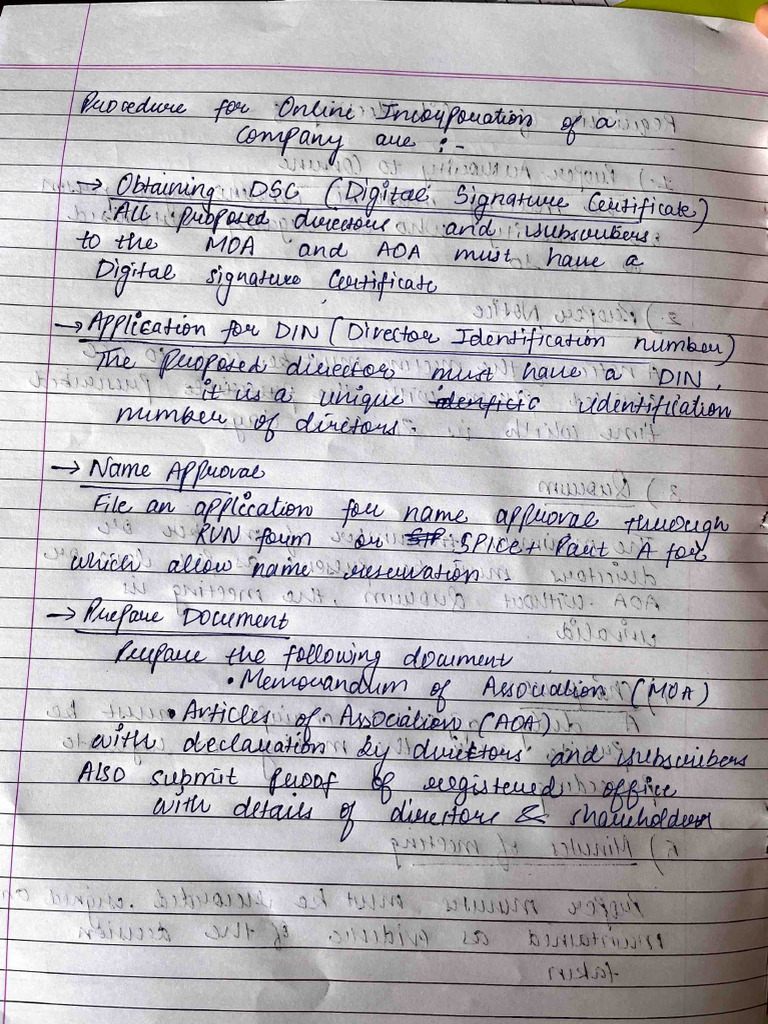 Procedure for Online Incorporation of a
company are :-
→ Obtaining DSC (Digital Signature Certificate)
All proposed directors and subscribers
to the MOA and AOA must have a
Digital signature Certificate
→ Application for DIN (Director Identification number)
The proposed director must have a DIN,
it is a unique identification
number of dirctors.
→ Name Approval
File an application for name approval through
RUN form or SPICe+ Part A for
which allow name reservation
→ Prepare Document
Prepare the following document
• Memorandum of Association (MOA)
• Articles of Association (AOA)
with declaration by directors and subscribers
Also submit proof of registered office
with details of directors & shareholders